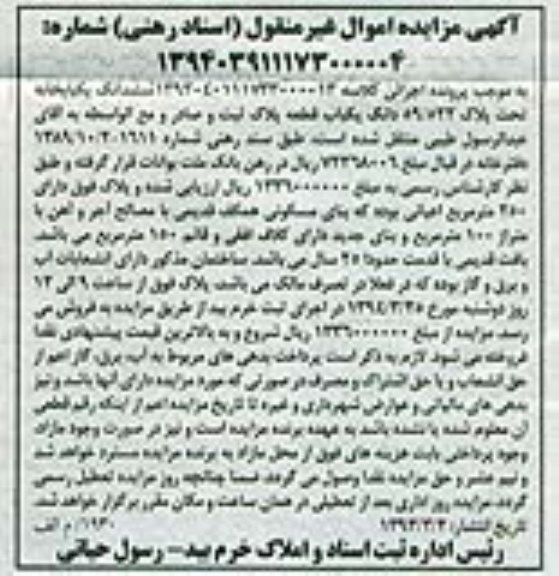 آگهی مزایده اموال غیرمنقول (اسناد رهنی) شماره:
۱۳۹۴۰۳۹۱۱۱۷۳۰۰۰۰۰۴
به موجب پرونده اجرائی کلاسه ششدانگ یکبابخانه
تحت پلاک ۵۹/۷۲۲ دانگ یکباب قطعه پلاک ثبت و صادر و مع الواسطه به آقای
عبدالرسول طیبی منتقل شده است، طبق سند رهنی شماره
دفترخانه در قبال مبلغ ریال در رهن بانک ملت بوانات قرار گرفته و طبق
نظر کارشناس رسمی به مبلغ ۱۳۳۶۰۰۰۰۰۰ ریال ارزیابی شده و پلاک فوق دارای
۲۵۰ مترمربع اعیانی بوده که بنای مسکونی همکف قدیمی با مصالح آجر و آهن با
متراژ ۱۰۰ مترمربع و بنای جدید دارای کلاف افقی و قائم ۱۵۰ مترمربع می باشد.
بافت قدیمی با قدمت حدودا ۲۵ سال می باشد. ساختمان مذکور دارای انشعابات آب
و برق و گاز بوده که در فعلا در تصرف مالک می باشد، پلاک فوق از ساعت ۹ الی ۱۲
روز دوشنبه مورخ ۱۳۹۴/۳/۲۵ در اجرای ثبت خرم بید از طریق مزایده به فروش می
رسد. مزایده از مبلغ ۱۳۳۶۰۰۰۰۰۰ ریال شروع و به بالاترین قیمت پیشنهادی نقدا
فروخته می شود. لازم به ذکر است پرداخت بدهی های مربوط به آب، برق، گاز اعم از
حق انشعاب و یا حق اشتراک و مصرف در صورتی که مورد مزایده دارای آنها باشد و نیز
بدهی های مالیاتی و عوارض شهرداری و غیره تا تاریخ مزایده اعم از اینکه رقم قطعی
آن معلوم شده یا نشده باشد به عهده برنده مزایده است و نیز در صورت وجود مازاد،
وجوه پرداختی بابت هزینه های فوق از محل مازاد به برنده مزایده مسترد خواهد شد
و نیم عشر و حق مزایده نقدا وصول می گردد. ضمنا چنانچه روز مزایده تعطیل رسمی
گردد، مزایده روز اداری بعد از تعطیلی در همان ساعت و مکان مقرر برگزار خواهد شد.
تاریخ انتشار: ۱۳۹۴/۳/۴ م الف
رئیس اداره ثبت اسناد و املاک خرم بید- رسول حیاتی